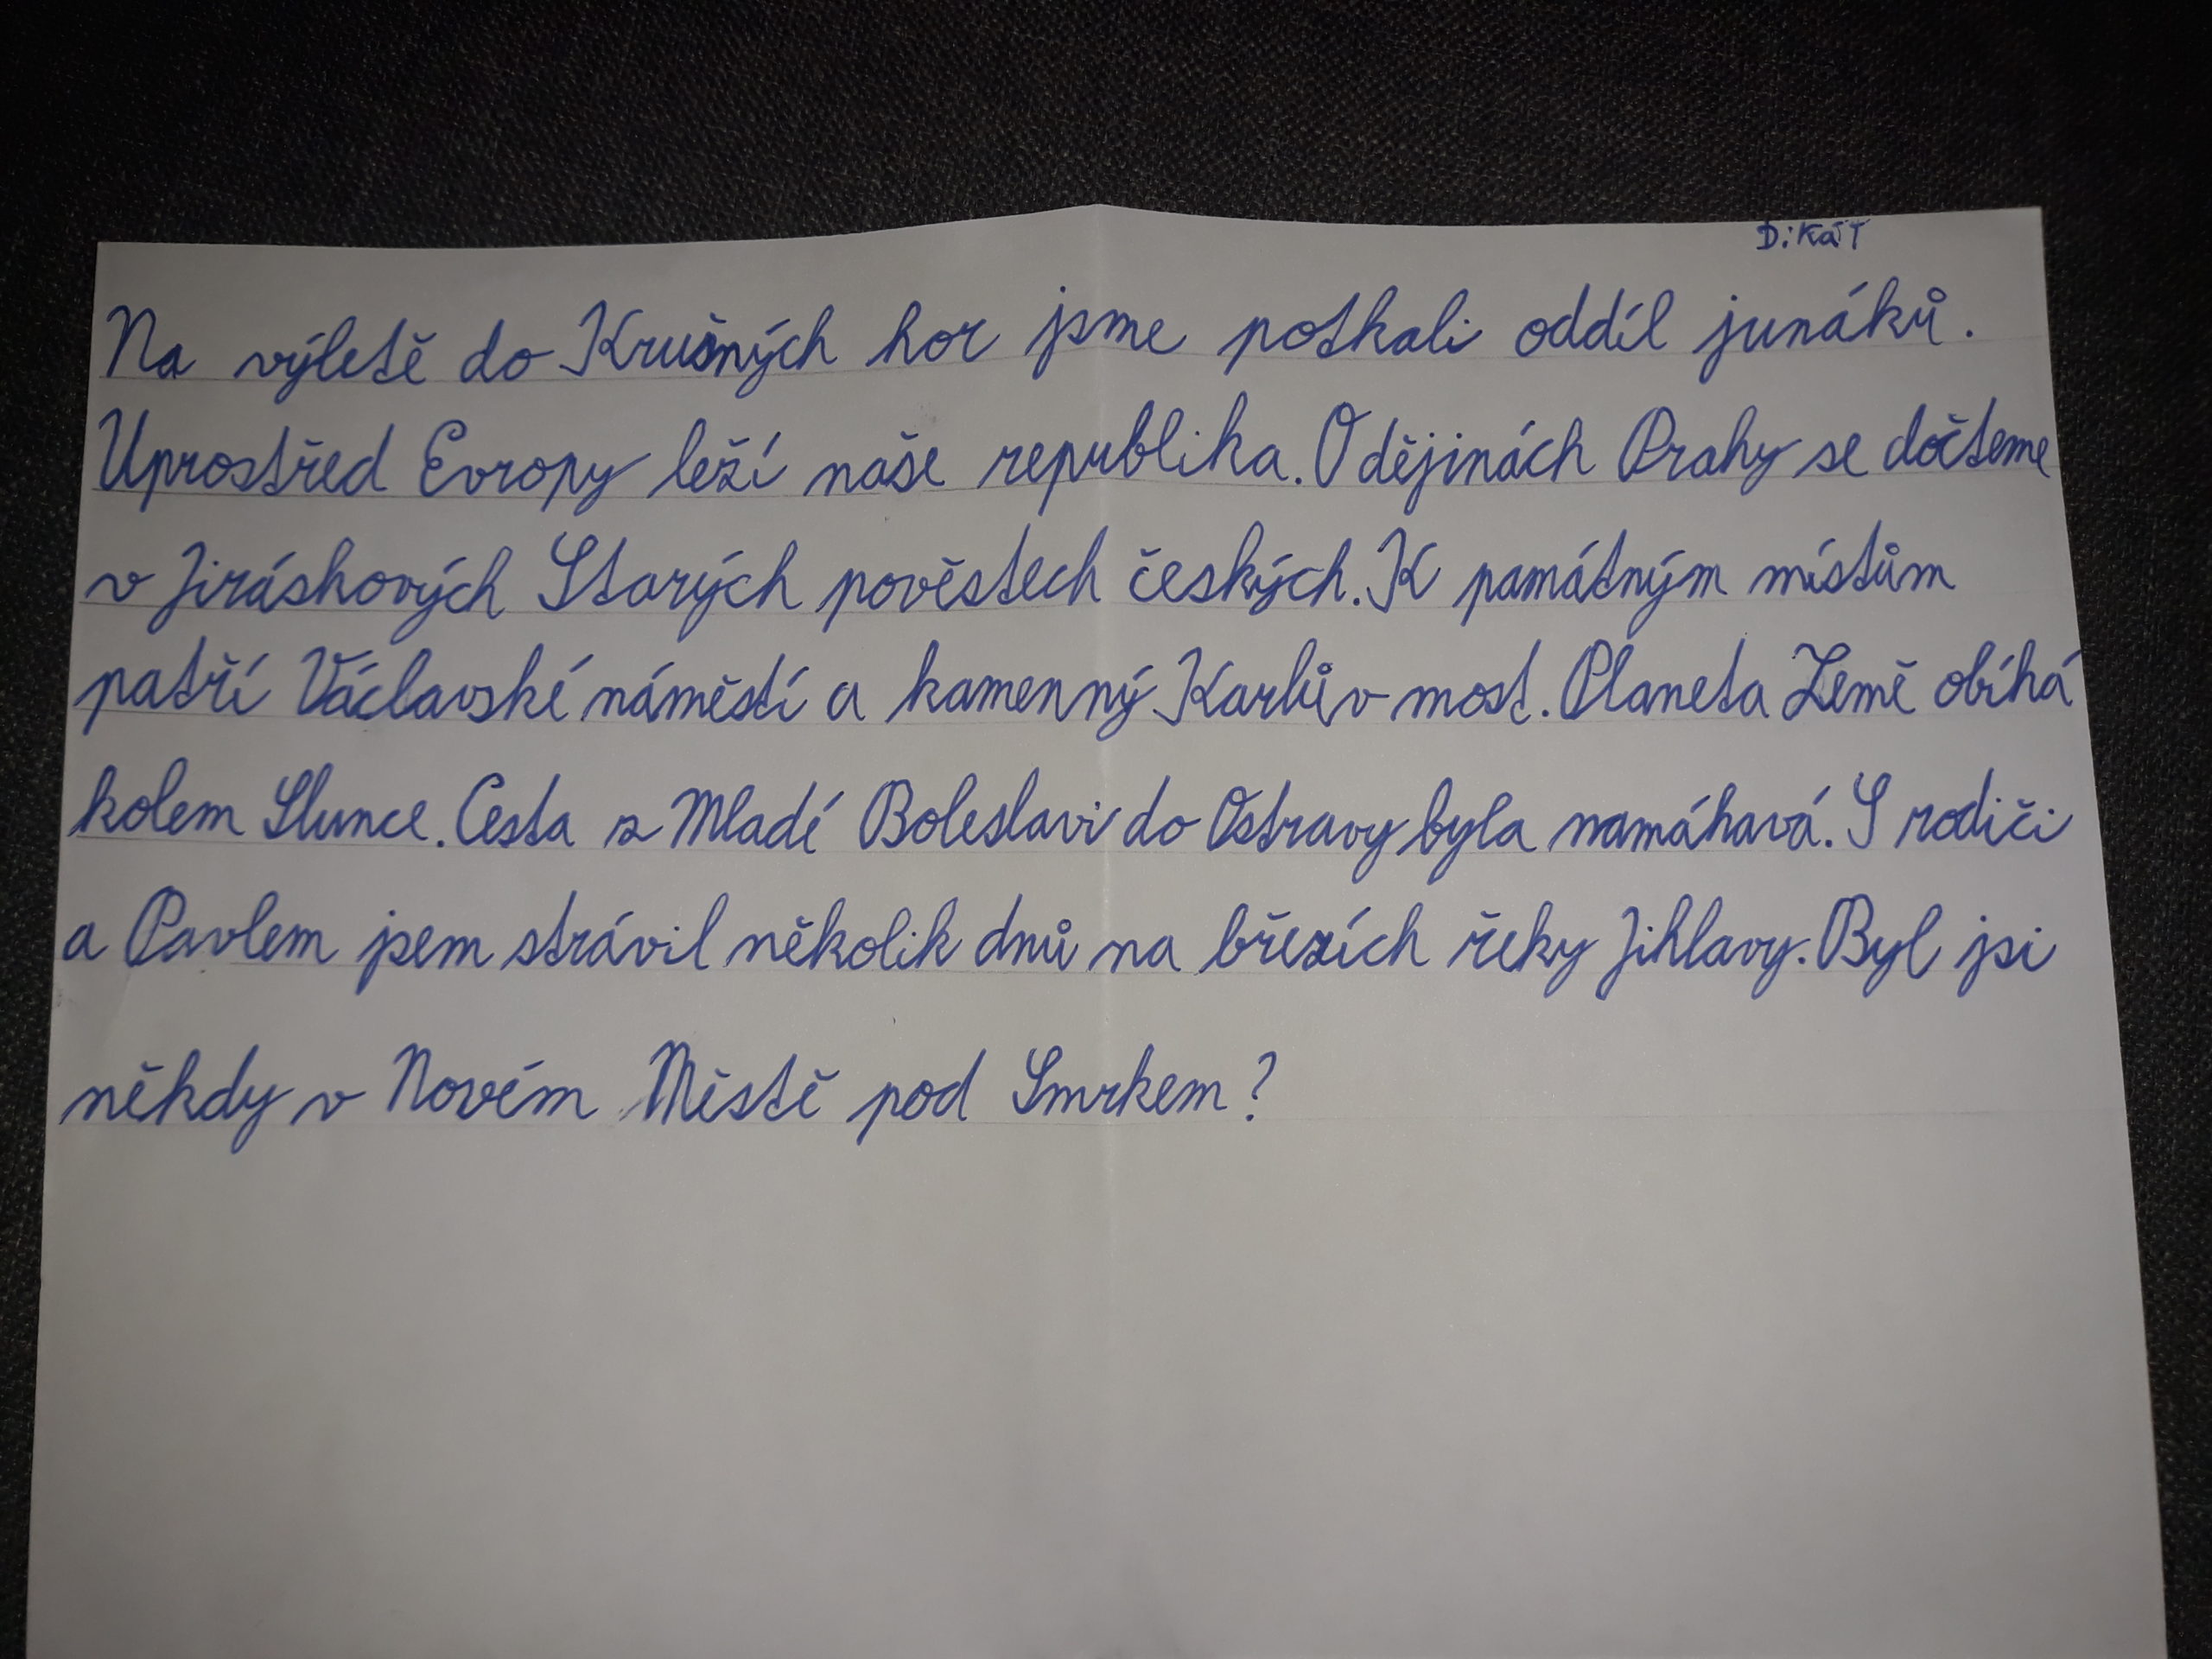 DiKáT
Na výletě do Krušných hor jsme potkali oddíl junáků.
Uprostřed Evropy leží naše republika. O dějinách Prahy se dočteme
v Jiráskových Starých pověstech českých. K památným místům
patří Václavské náměstí a kamenný Karlův most. Planeta Země obíhá
kolem Slunce. Cesta z Mladé Boleslavi do Ostravy byla namáhavá. S rodiči
a Pavlem jsem strávil několik dnů na březích řeky Jihlavy. Byl jsi
někdy v Novém Městě pod Smrkem?